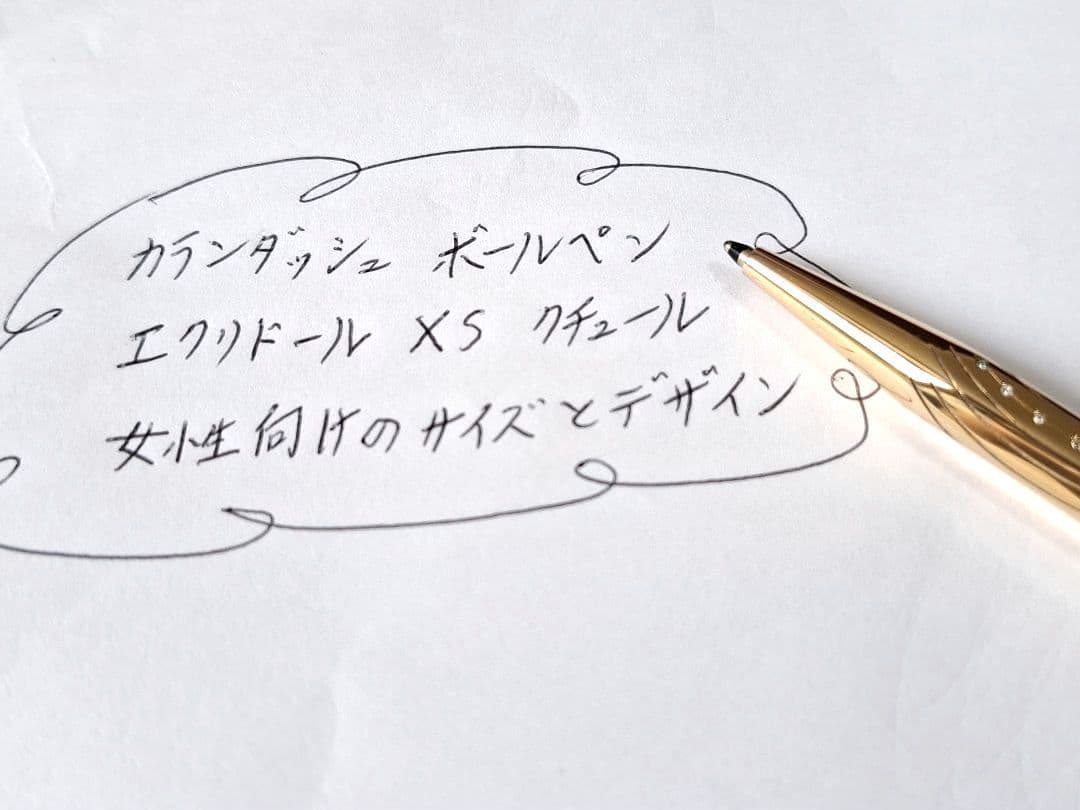 カランダッシュ ボールペン
エクリドール XS クチュール
女性向けのサイズとデザイン